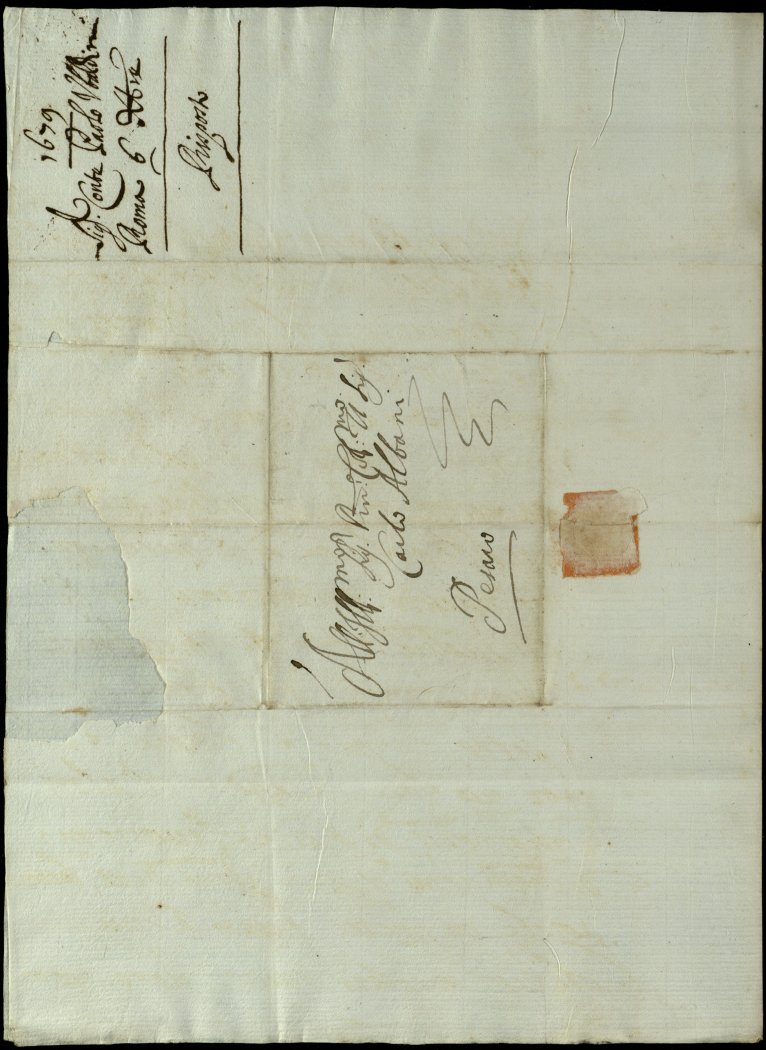 1679
Sig. Conte Paolo Ubaldini
Roma 6 Xbre
Risposto
All Ill.mo Sig. Pron Col.mo Il Sig.
Carlo Albani
Pesaro